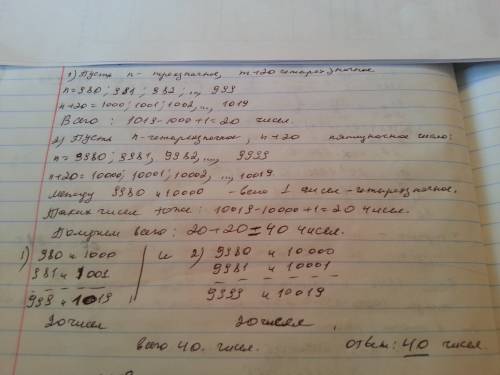 1) Пусть n - трехзначное, n+20 четырехзначное
n = 980; 981; 982; ..., 999
n+20 = 1000; 1001; 1002, ..., 1019
Всего: 1019-1000+1=20 чисел.
2) Пусть n-четырехзначное, n+20 пятизначное число:
n = 9980; 9981, 9982, ..., 9999
n+20 = 10000; 10001; 10002, ..., 10019
Между 9980 и 10000 - всего 1 чисел-четырехзначное.
Таких чисел тоже: 10019-10000+1=20 чисел.
Получаем всего: 20+20=40 чисел.
1) 980 и 1000 и 2) 9980 и 10000
981 и 1001 9981 и 10001
999 и 1019 9999 и 10019
20 чисел 20 чисел
всего 40 чисел. ответ: 40 чисел